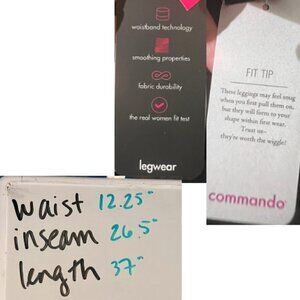 waistband technology
smoothing properties
fabric durability
the real women fit test
legwear
FIT TIP
These leggings may feel snug
when you first pull them on,
but they will form to your
shape within first wear.
Trust us–
they're worth the wiggle!
commando
waist 12.25"
inseam 26.5"
length 37"